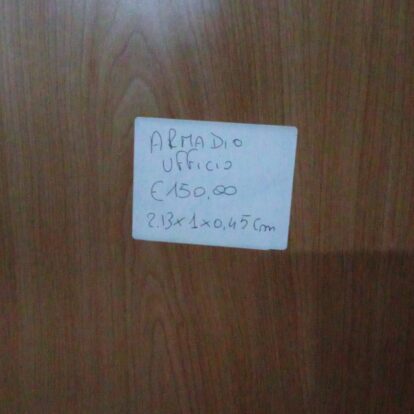 ARMADIO
UFFICIO
€150,00
2.13x1x0,45cm